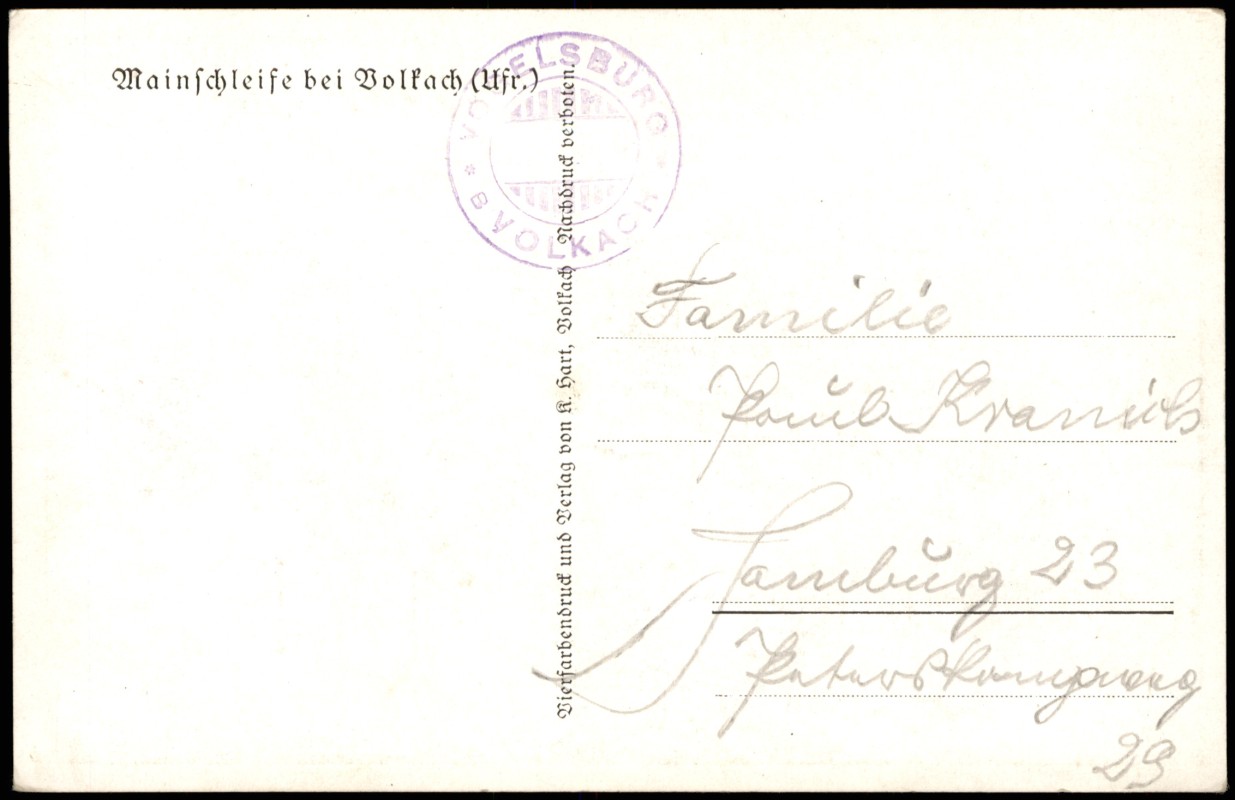 Mainschleife bei Volkach (Ufr.)
VOGELSBURG
* B VOLKACH *
Vierfarbendruck und Verlag von K. Hart, Volkach Nachdruck verboten.
Familie
Paul
Hamburg 23
Peterskampweg
29